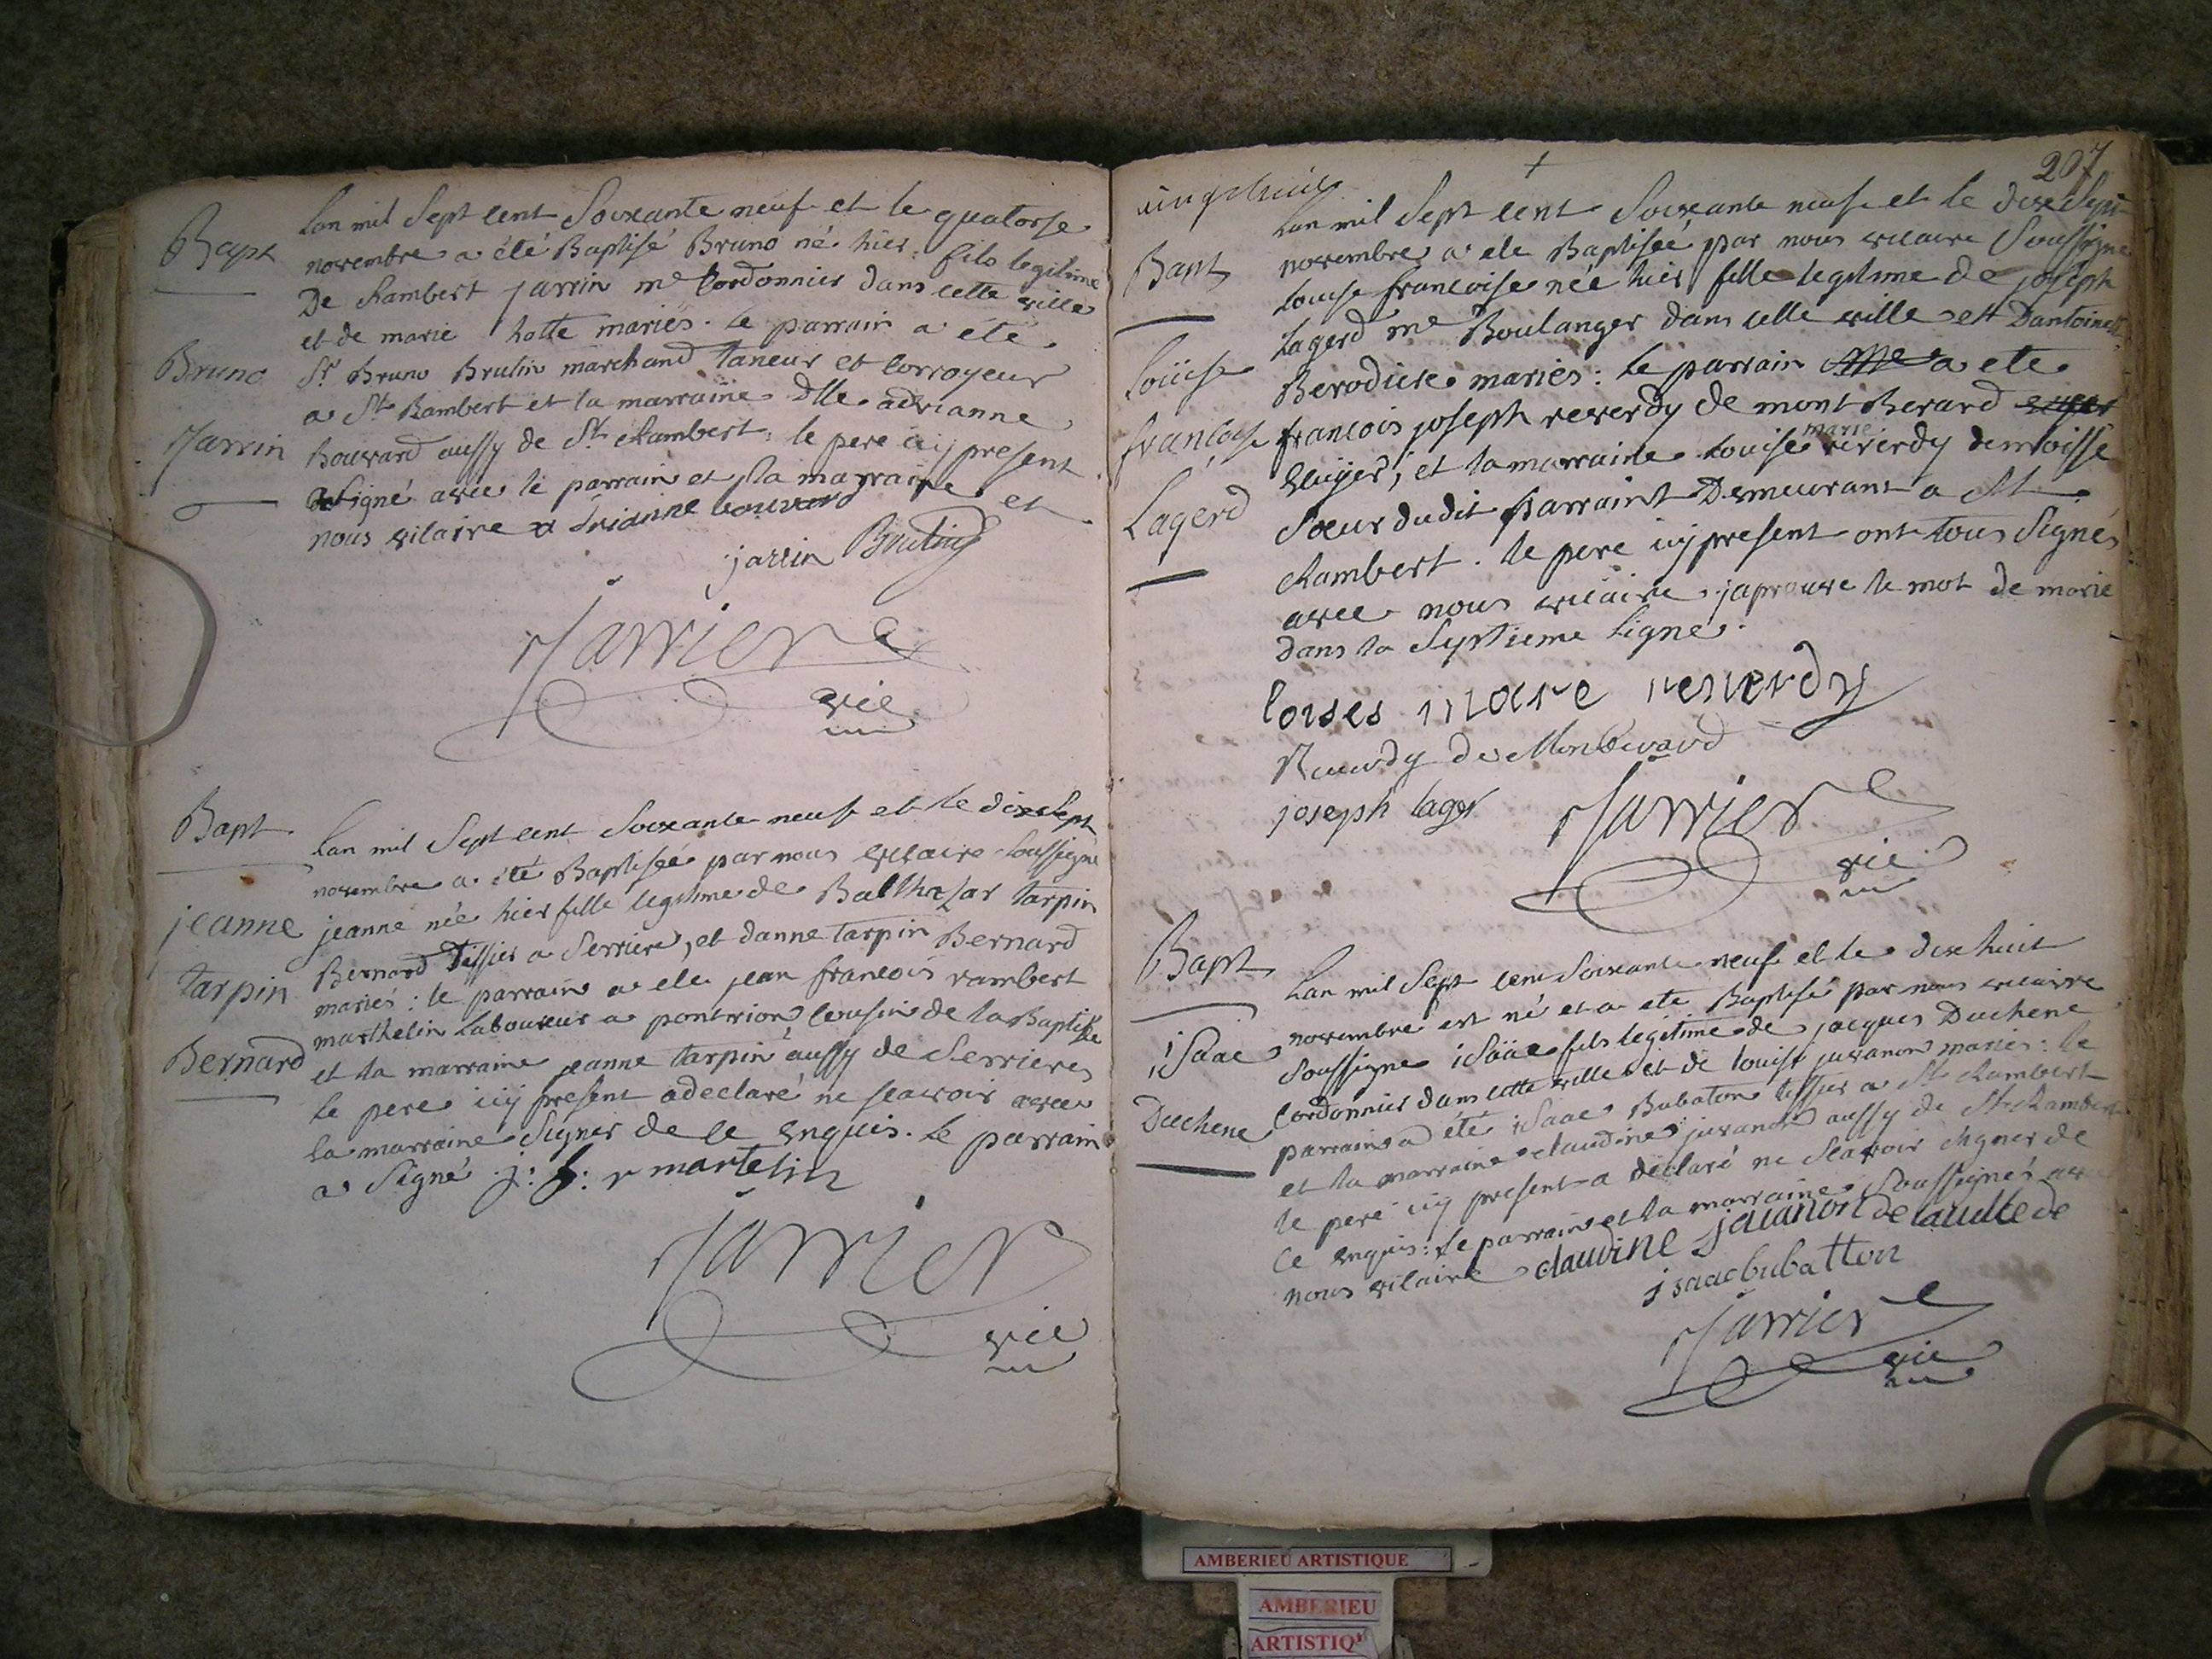 Bapt
Bruno
Jarrin
Lan mil Sept cent Soixante neuf et le quatorse
novembre a été Baptisé Bruno né hier: fils legitime
De Rambert jarrin me Cordonnier dans cette ville
et de marie hotte mariés. le parrain a été
Sr Bruno Brutin marchand taneur et corroyeur
a St Rambert et la marraine dlle adrianne
Bouvard aussy de St Rambert: le pere icy present
a Signé avec le parrain et la marraine et
nous vicaire adrianne bouvard
jarrin Brutin
Jarrier
vic
Bapt
jeanne
tarpin
Bernard
Lan mil Sept cent Soixante neuf et le dix Sept
novembre a été Baptisée par nous vicaire Soussigné
jeanne née hier fille legitime de Balthazar tarpin
Bernard Tissier a Serriere, et danne tarpin Bernard
mariés: le parrain a ete jean francois rambert
marthelin Laboureur a pontrion, Cousin de la Baptisée
et la marraine jeanne tarpin aussy de Serrieres
le pere icy present a declaré ne scavoir avec
la marraine Signer de ce Enquis. Le parrain
a Signé j: f: r martelin
Jarrier
vic
207
Bapt
Loüise
françoise
Lagerd
Lan mil Sept cent Soixante neuf et le dix Sept
novembre a ete Baptisée par nous vicaire Soussigné
Louise francoise née hier fille legitime de joseph
Lagerd me Boulanger dans cette ville et Dantoinette
Berodiere mariés: le parrain a ete
francois joseph reverdy de mont Berard
et la marraine Louise marie reverdy demoisse
Sœur dudit parraint Demeurant a St
Rambert. le pere icy present ont tous Signés
avec nous vicaire. japrouve le mot de marie
dans la Septieme Ligne.
loises marie reverdy
Reverdy de Montberard
joseph lager
Jarrier
vic
Bapt
iSaac
Duchene
Lan mil Sept cent Soixante neuf et le dix huit
novembre est né et a ete Baptisé par nous vicaire
Soussigne iSäac fils legitime de jacques Duchene
Cordonnier dans cette ville et de Louise juvanon mariés: le
parrain a été iSaac Bubaton tissier a St Rambert
et la marraine claudine juvanon aussy de St Rambert
le pere icy present a declaré ne Scavoir Signer de
Ce Enquis: le parrain et la marraine Soussignés avec
nous vicaire claudine jauanon
isaac bubatton
Jarrier
vic
AMBERIEU ARTISTIQUE
AMBERIEU
ARTISTIQ